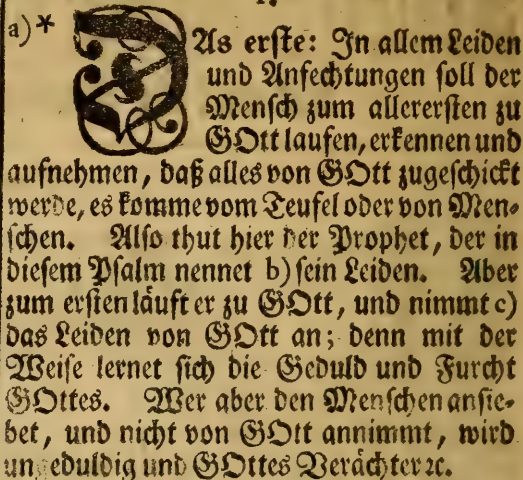 a)*
DAs erſte: In allem Leiden
und Anfechtungen ſoll der
Menſch zum allererſten zu
GOtt laufen, erkennen und
aufnehmen, daß alles von GOtt zugeſchickt
werde, es komme vom Teufel oder von Men-
ſchen. Alſo thut hier der Prophet, der in
dieſem Pſalm nennet b) ſein Leiden. Aber
zum erſten läuft er zu GOtt, und nimmt c)
das Leiden von GOtt an; denn mit der
Weiſe lernet ſich die Geduld und Furcht
GOttes. Wer aber den Menſchen anſie-
het, und nicht von GOtt annimmt, wird
ungeduldig und GOttes Verächter ꝛc.